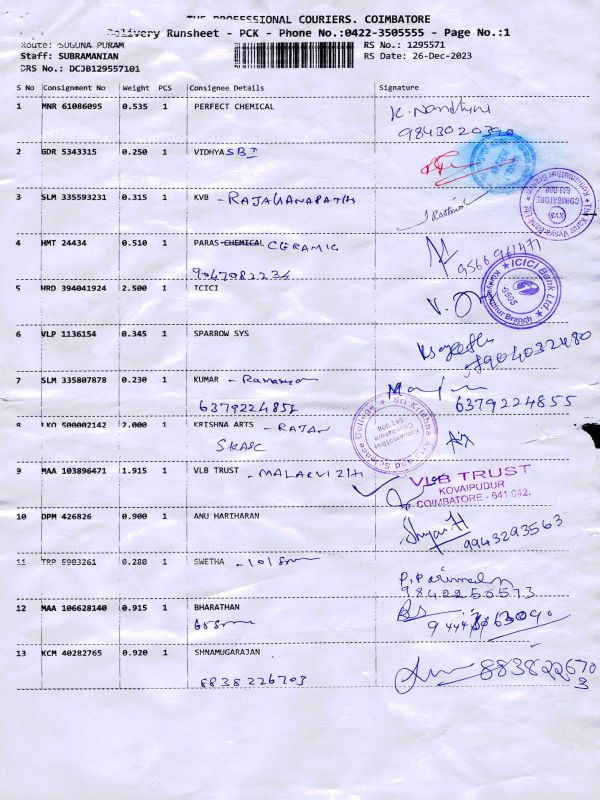 THE PROFESSIONAL COURIERS. COIMBATORE
Delivery Runsheet - PCK - Phone No.:0422-3505555 - Page No.:1
Route: SUGUNA PURAM RS No.: 1295571
Staff: SUBRAMANIAN RS Date: 26-Dec-2023
DRS No.: DCJB129557101
S No Consignment No Weight PCS Consignee Details Signature
1 MNR 61086095 0.535 1 PERFECT CHEMICAL K. Nandhini
9843020390
2 GDR 5343315 0.250 1 VIDHYA SBI
3 SLM 335593231 0.315 1 KVB - RAJAGANAPATHY
The Karur Vysya Bank Ltd. KVB COIMBATORE 641 008 Kuniamuthur Branch
4 HMT 24434 0.510 1 PARAS CHEMICAL CERAMIC
9047082234 9566941471
5 HRD 394041924 2.500 1 ICICI V.
ICICI Bank Ltd. Branch
6 VLP 1136154 0.345 1 SPARROW SYS
8904032480
7 SLM 335807878 0.230 1 KUMAR -
6379224855 6379224855
8 LKO 500002142 2.000 1 KRISHNA ARTS - RAJAN
SKASC
Sri Krishna Arts and Science College Kuniamuthur Coimbatore 641 008
9 MAA 103896471 1.915 1 VLB TRUST - MALARVIZHI
VLB TRUST
KOVAIPUDUR
COIMBATORE - 641 042.
10 DPM 426826 0.900 1 ANU HARIHARAN Shyam H
9943293563
11 TRP 5903261 0.280 1 SWETHA -
9842250573
12 MAA 106628140 0.915 1 BHARATHAN
13 KCM 40282765 0.920 1 SHNAMUGARAJAN
8838226703 8838226703